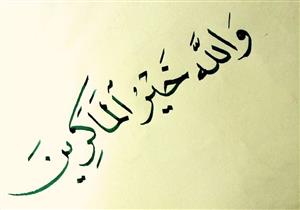 وَاللَّهُ خَيْرُ الْمَاكِرِينَ